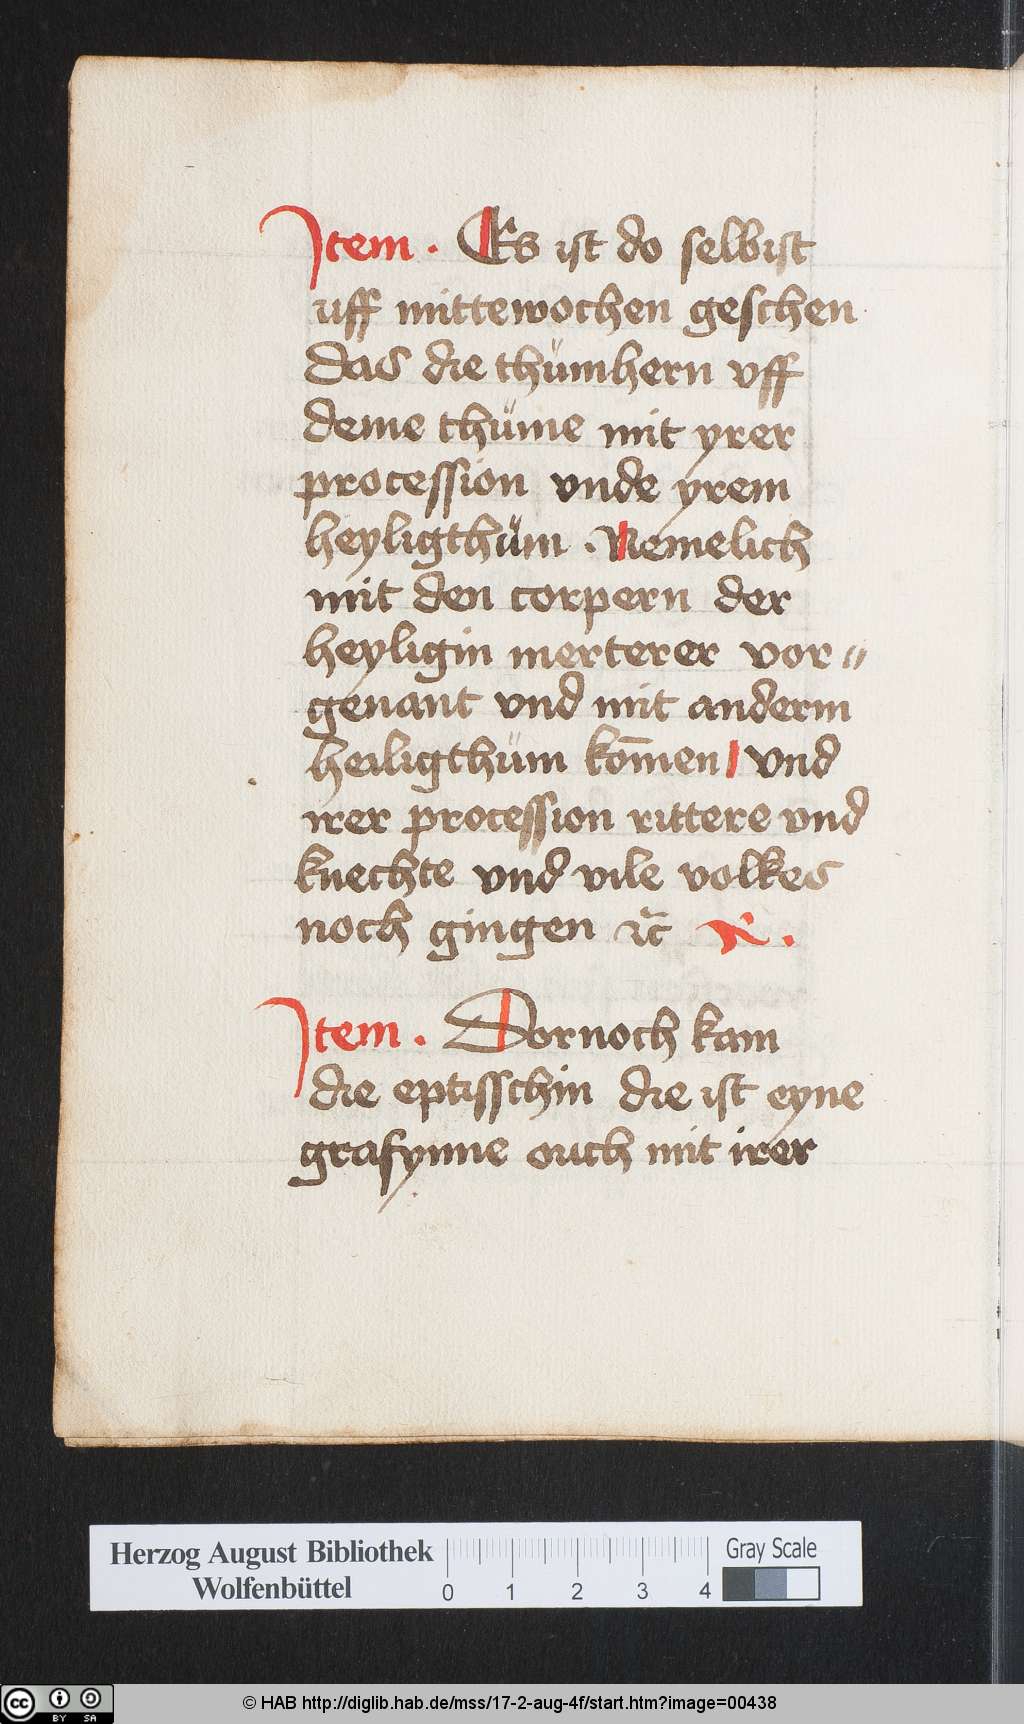 Item . Es ist do selbist
uff mittewochen geschen
das die thümhern vff
deme thüme mit yrer
procession vnde yrem
heyligthüm . Nemelich
mit den corpern der
heyligin merterer vor〃
genant vnd mit anderm
heiligthüm kom̄en vnd
irer procession rittere vnd
knechte vnd vile volkes
noch gingen ꝛc̃
Item . Dornoch kam
die eptisschin die ist eyne
grafynne ouch mit irer
Herzog August Bibliothek
Wolfenbüttel
0 1 2 3 4
Gray Scale
cc BY SA
© HAB http://diglib.hab.de/mss/17-2-aug-4f/start.htm?image=00438